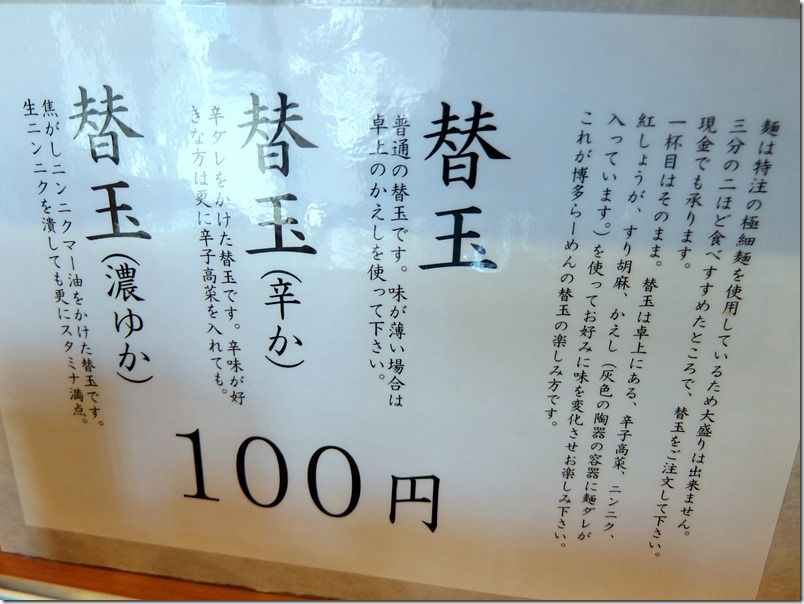 麺は特注の極細麺を使用しているため大盛りは出来ません。
三分の二ほど食べすすめたところで、替玉をご注文して下さい。
現金でも承ります。
一杯目はそのまま。替玉は卓上にある、辛子高菜、ニンニク、
紅しょうが、すり胡麻、かえし（灰色の陶器の容器に麺ダレが
入っています。）を使ってお好みに味を変化させお楽しみ下さい。
これが博多らーめんの替玉の楽しみ方です。
替玉
普通の替玉です。味が薄い場合は
卓上のかえしを使って下さい。
替玉（辛か）
辛ダレをかけた替玉です。辛味が好
きな方は更に辛子高菜を入れても。
替玉（濃ゆか）
焦がしニンニクマー油をかけた替玉です。
生ニンニクを潰しても更にスタミナ満点。
100円